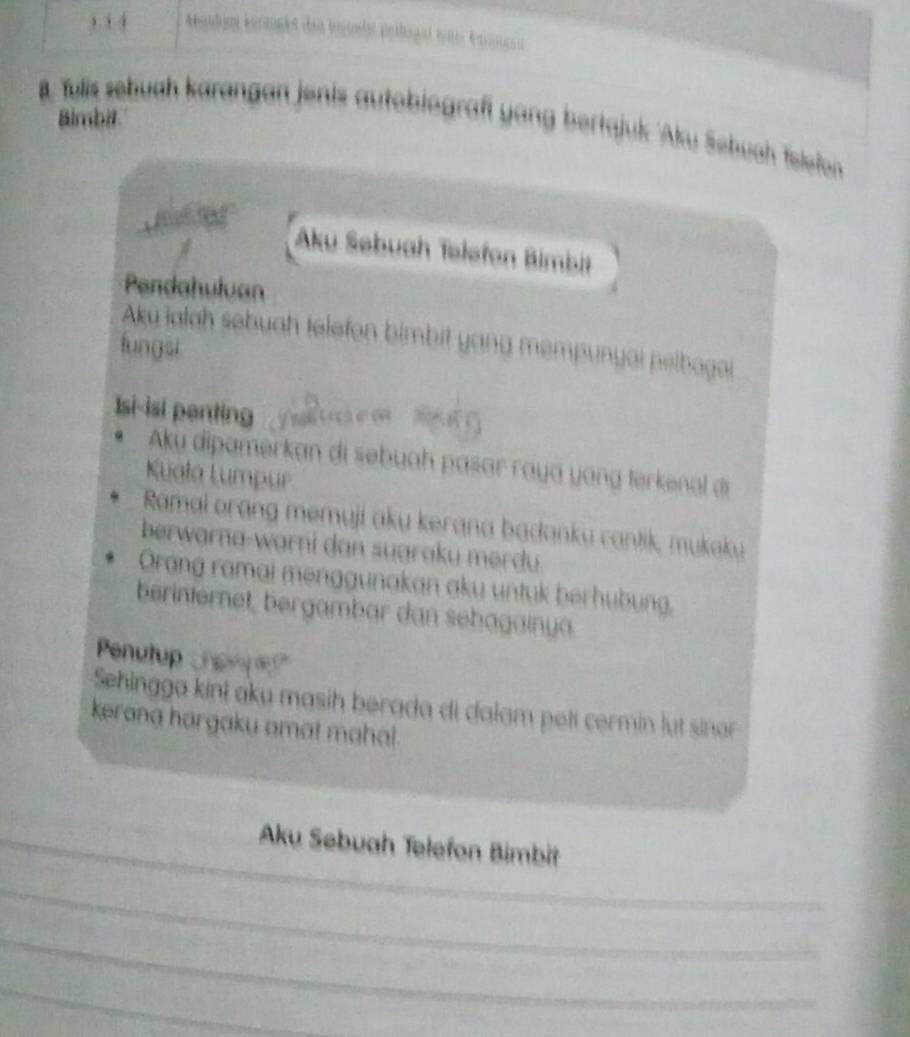 3.3.4
B. Tulis sebuah karangan jenis autobiografi yang bertajuk 'Aku Sebuah Telefon
Bimbit.'
Aku Sebuah Telefon Bimbit
Pendahuluan
Aku ialah sebuah telefon bimbit yang mempunyai pelbagai
fungsi.
Isi-isi penting
• Aku dipamerkan di sebuah pasar raya yang terkenal di
Kuala Lumpur.
• Ramai orang memuji aku kerana badanku cantik, mukaku
berwarna-warni dan suaraku merdu.
• Orang ramai menggunakan aku untuk berhubung,
berinternet, bergambar dan sebagainya.
Penutup
Sehingga kini aku masih berada di dalam peti cermin lut sinar
kerana hargaku amat mahal.
Aku Sebuah Telefon Bimbit